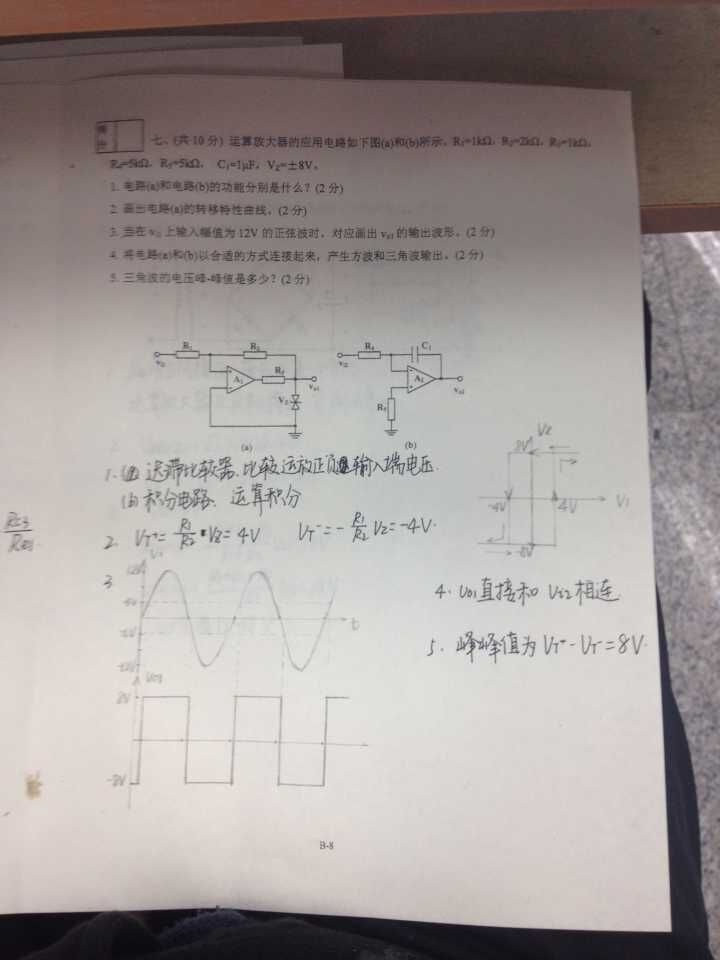 得
分
七、(共10分) 运算放大器的应用电路如下图(a)和(b)所示，R₁=1kΩ，R₂=2kΩ，R₃=1kΩ，
R₄=5kΩ，R₅=5kΩ， C₁=1μF，V_Z=±8V。
1. 电路(a)和电路(b)的功能分别是什么？(2分)
2. 画出电路(a)的转移特性曲线。(2分)
3. 当在 v_i1 上输入幅值为 12V 的正弦波时，对应画出 v_o1 的输出波形。(2分)
4. 将电路(a)和(b)以合适的方式连接起来，产生方波和三角波输出。(2分)
5. 三角波的电压峰-峰值是多少？(2分)
R₁ R₂ R₄ C₁
v_i1 A₁ R₃ v_o1 v_i2 A₂ v_o2
V_Z R₅
(a) (b)
1. (a) 迟滞比较器. 比较运放正负输入端电压.
(b) 积分电路. 运算积分
2. V_T⁺= R₁/R₂ • V_Z = 4V V_T⁻ = - R₁/R₂ V_Z = -4V.
8V
-4V 4V V₁
-8V
3
t
-12V
8V
-8V
4. V_o1 直接和 V_i2 相连
5. 峰峰值为 V_T⁺ - V_T⁻ = 8V.
B-8